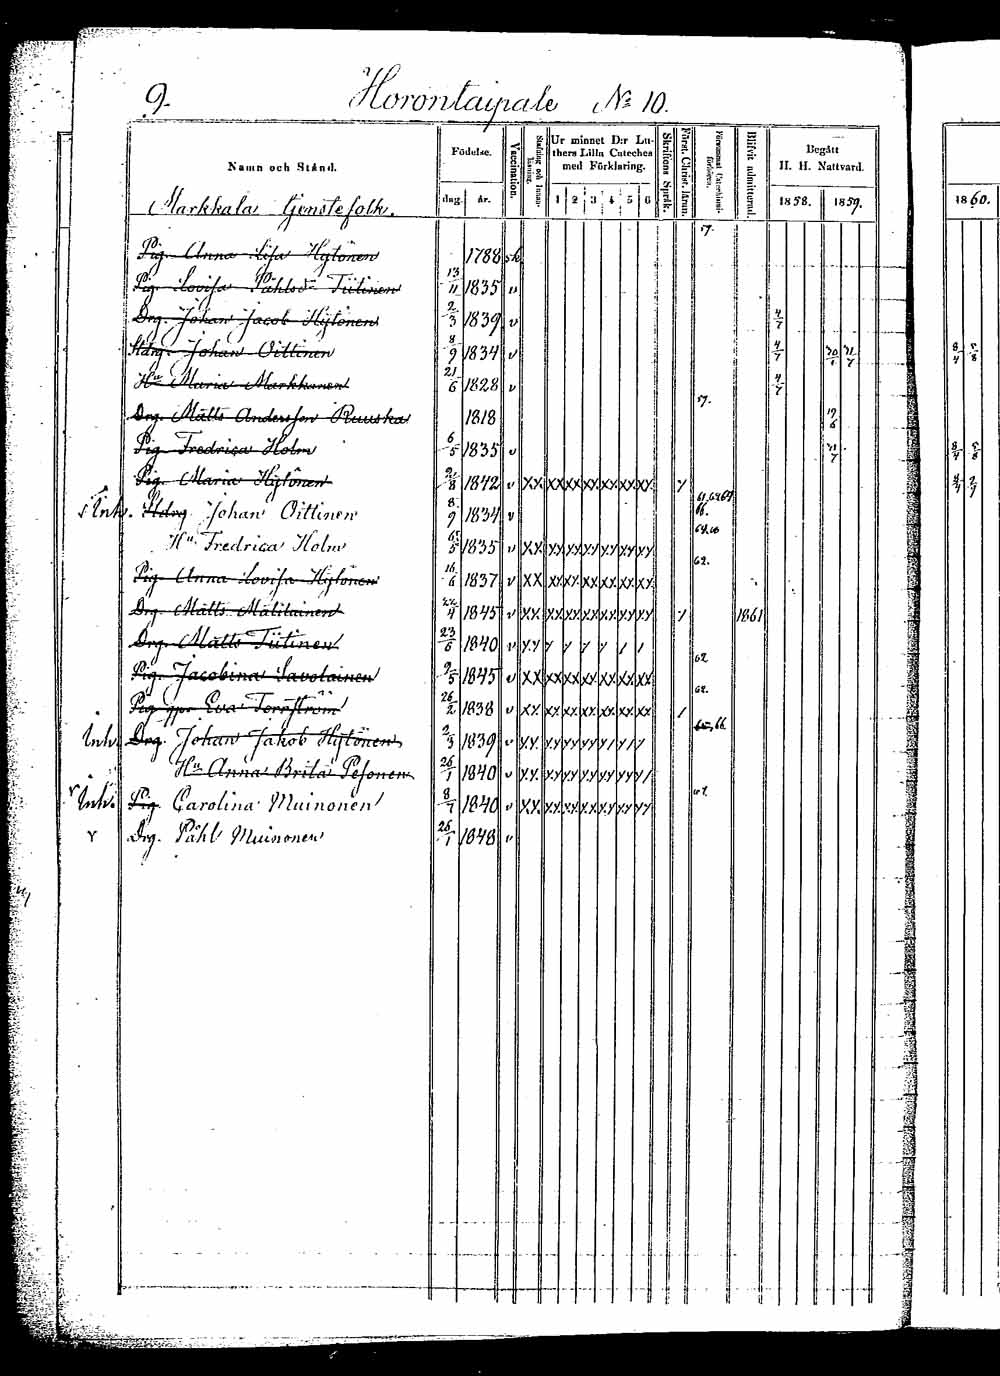 9. Horontaipale No 10.
Namn och Stånd. Födelse. Vaccination. Stafning och Innanläsning. Ur minnet D:r Luthers Lilla Cateches med Förklaring. Skriftens Språk. Först. Christ. lärun. Försummat Catechismiförhören. Blifvit admitterad. Begått H. H. Nattvard.
dag. år. 1 2 3 4 5 6 1858. 1859. 1860.
Markkala tjenstefolk.
57.
Pig. Anna Lisa Hytönen 1788 sk
Pig. Lovisa Påhlsdr Tiitinen 13/11 1835 v
Drg. Johan Jacob Hytönen 2/3 1839 v 4/7
Stdrg. Johan Oittinen 8/9 1834 v 4/7 8/4 5/8
Hu Maria Markkanen 21/6 1828 v 4/7
Drg. Matts Andersson Ruuska 1818 57.
Pig. Fredrica Holm 6/5 1835 v 8/4 5/8
Pig. Maria Hytönen 1842 v XX XX XX XX XX XX XX
Inh. Stdrg Johan Oittinen 8/9 1834 v
Hu Fredrica Holm 6/5 1835 v XX XX XX XX XX XX XX
62.
Pig. Anna Lovisa Hytönen 16/6 1837 v XX XX XX XX XX XX XX
Drg. Matts Mälilainen 1845 v XX XX XX XX XX XX XX 1861
Drg. Matts Tiitinen 23/6 1840 v
62
Pig. Jacobina Savolainen 9/5 1845 v XX XX XX XX XX XX XX
62.
Pig. Eva Terrström 26/2 1838 v XX XX XX XX XX XX XX
66.
Inh. Drg. Johan Jakob Hytönen 2/3 1839 v
Hu Anna Brita Pesonen 26/1 1840 v
Inh. Pig. Carolina Muinonen 8/7 1840 v XX XX XX XX XX XX XX
Drg. Påhl Muinonen 26/1 1848 v